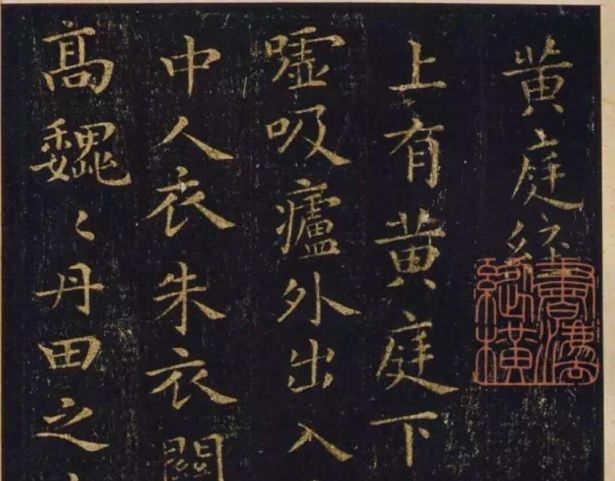 黄庭經
上有黄庭下
嘘吸廬外出入
中人衣朱衣關
高巍〻丹田之